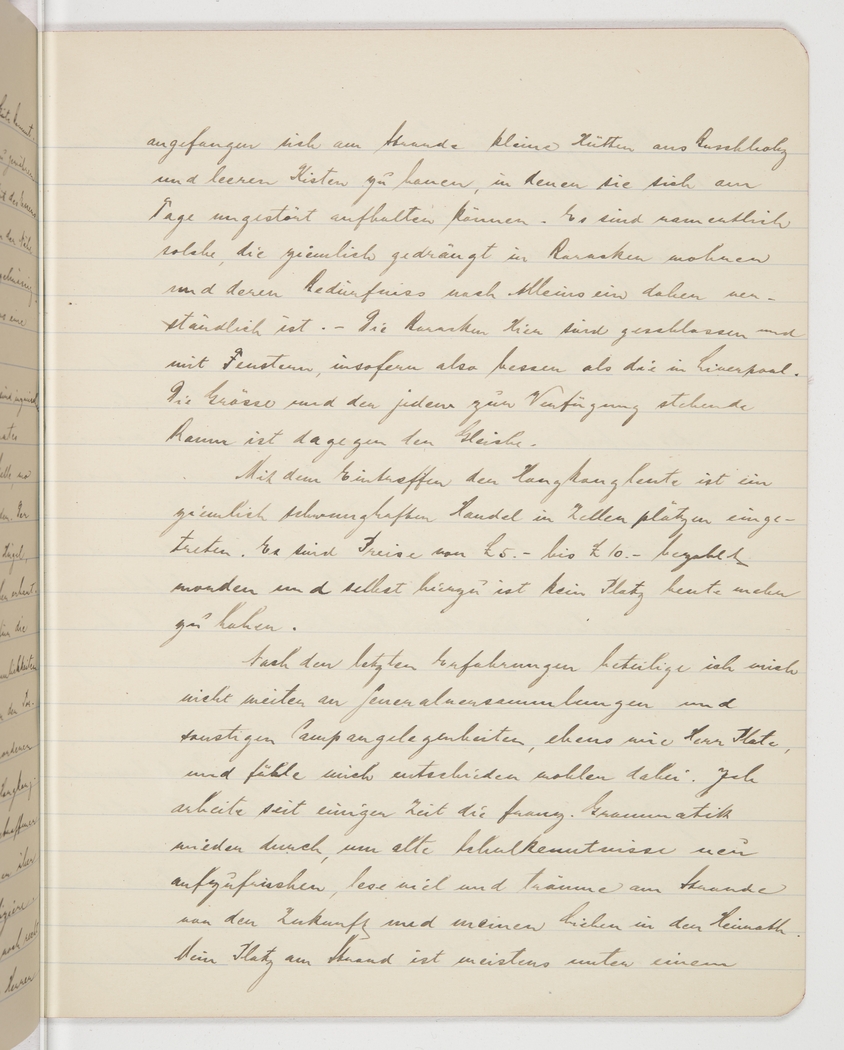 angefangen sich am Strande kleine Hütten aus Buschholz
und leeren Kisten zu bauen, in denen sie sich am
Tage ungestört aufhalten können. Es sind namentlich
solche, die ziemlich gedrängt in Baracken wohnen
und deren Bedürfniss nach Alleinsein daher ver-
ständlich ist. - Die Baracken hier sind geschlossen und
mit Fenstern, insofern also besser als die in Liverpool.
Die Grösse und der jedem zur Verfügung stehende
Raum ist dagegen der Gleiche.
Mit dem Eintreffen der Hongkongleute ist ein
ziemlich schwunghafter Handel in Zellenplätzen einge-
treten. Es sind Preise von £5.- bis £10.- bezahlt
worden und selbst hierzu ist kein Platz heute mehr
zu haben.
Nach den letzten Erfahrungen beteilige ich mich
nicht weiter an Generalversammlungen und
sonstigen Campangelegenheiten, ebenso wie Herr Plate,
und fühle mich entschieden wohler dabei. Ich
arbeite seit einiger Zeit die franz. Grammatik
wieder durch, um alte Schulkenntnisse neu
aufzufrischen, lese viel und träume am Strande
von der Zukunft und meinen Lieben in der Heimath.
Mein Platz am Strand ist meistens unter einem